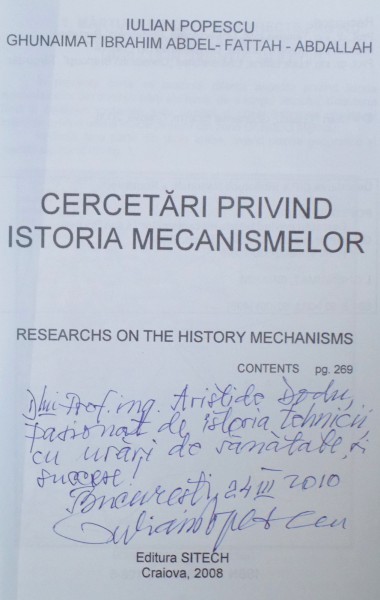 IULIAN POPESCU
GHUNAIMAT IBRAHIM ABDEL- FATTAH - ABDALLAH
CERCETĂRI PRIVIND
ISTORIA MECANISMELOR
RESEARCHS ON THE HISTORY MECHANISMS
CONTENTS pg. 269
Dlui Prof. ing. Aristide Dodu,
pasionat de istoria tehnicii
cu urări de sănătate și
succese!
București, 24 III 2010
Iulian Popescu
Editura SITECH
Craiova, 2008